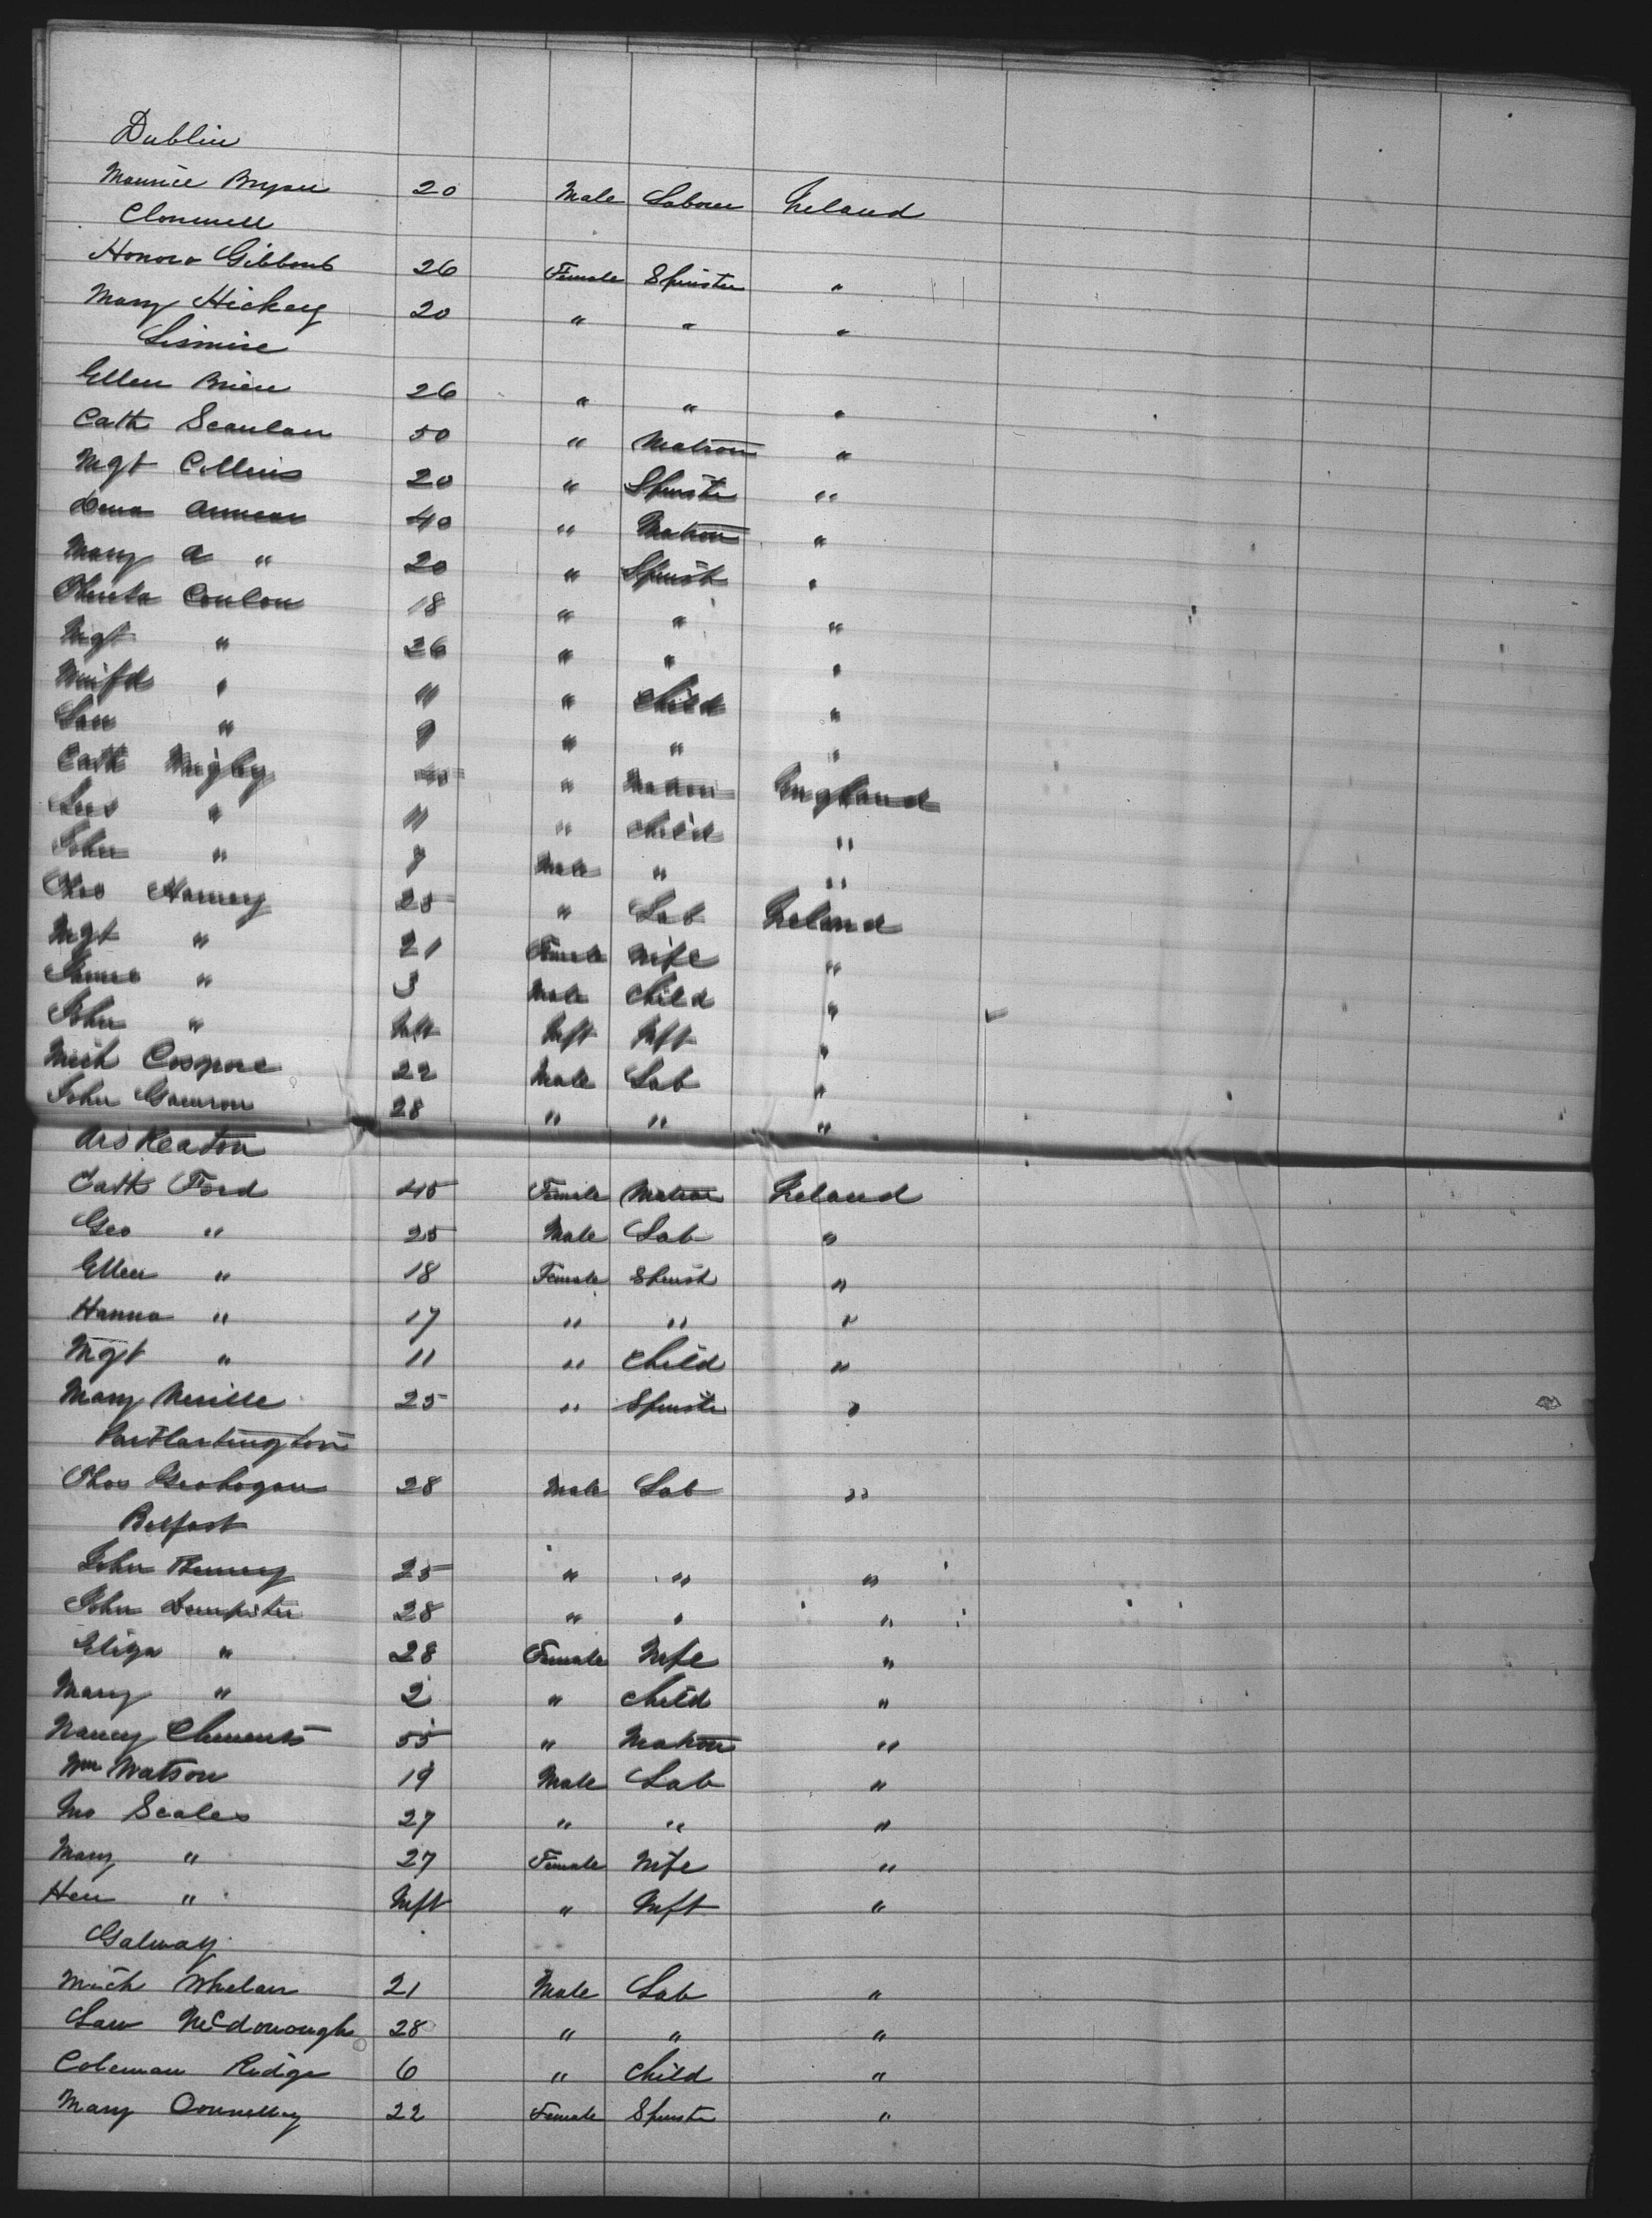 Dublin
Maurice Bryan 20 Male Labour Ireland
Clonmell
Honora Gibbons 26 Female Spinster "
Mary Hickey 20 " " "
Lismire
Ellen Brien 26 " " "
Cath Scanlan 50 " Matron "
Mgt Collins 20 " Spinster "
40 " Matron "
Mary A " 20 " Spinst "
Conlon 18 " " "
Mgt " 26 " " "
Winifd " 11 " Child "
" 9 " " "
Cath 40 " Matron England
" 11 " Child "
John " 7 Male " "
Thos Harney 25 " Lab Ireland
Mgt " 21 Female Wife "
James " 3 Male Child "
John " Inft Inft Inft "
Mich Cosgrove 22 Male Lab "
John 28 " " "
Askeaton
Cath Ford 45 Female Matron Ireland
Geo " 25 Male Lab "
Ellen " 18 Female Spinst "
Hanna " 17 " " "
Mgt " 11 " Child "
Mary Neville 25 " Spinster "
Portarlington
Thos Geohogan 28 Male Lab "
Belfast
John 25 " " "
John Dempster 28 " " "
Eliza " 28 Female Wife "
Mary " 2 " Child "
Nancy Clements 55 " Matron "
Wm Watson 19 Male Lab "
Scales 27 " " "
Mary " 27 Female Wife "
Hen " Inft " Inft "
Galway
Mich Whelan 21 Male Lab "
Law McDonough 28 " " "
Coleman Ridge 6 " Child "
Mary Connelly 22 Female Spinster "